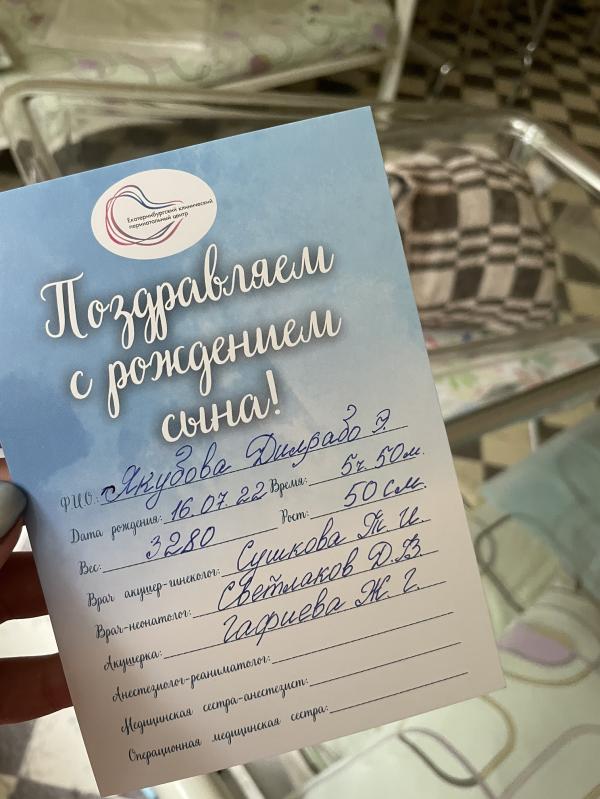 Екатеринбургский клинический
перинатальный центр
Поздравляем
с рождением
сына!
Ф.И.О.: Якубова Дилрабо Э.
Дата рождения: 16.07.22 Время: 5ч. 50м.
Вес: 3280 Рост: 50 см.
Врач акушер-гинеколог: Сушкова Т. И.
Врач-неонатолог: Светлаков Д.В.
Акушерка: Гафиева Ж. Г.
Анестезиолог-реаниматолог:
Медицинская сестра-анестезист:
Операционная медицинская сестра: